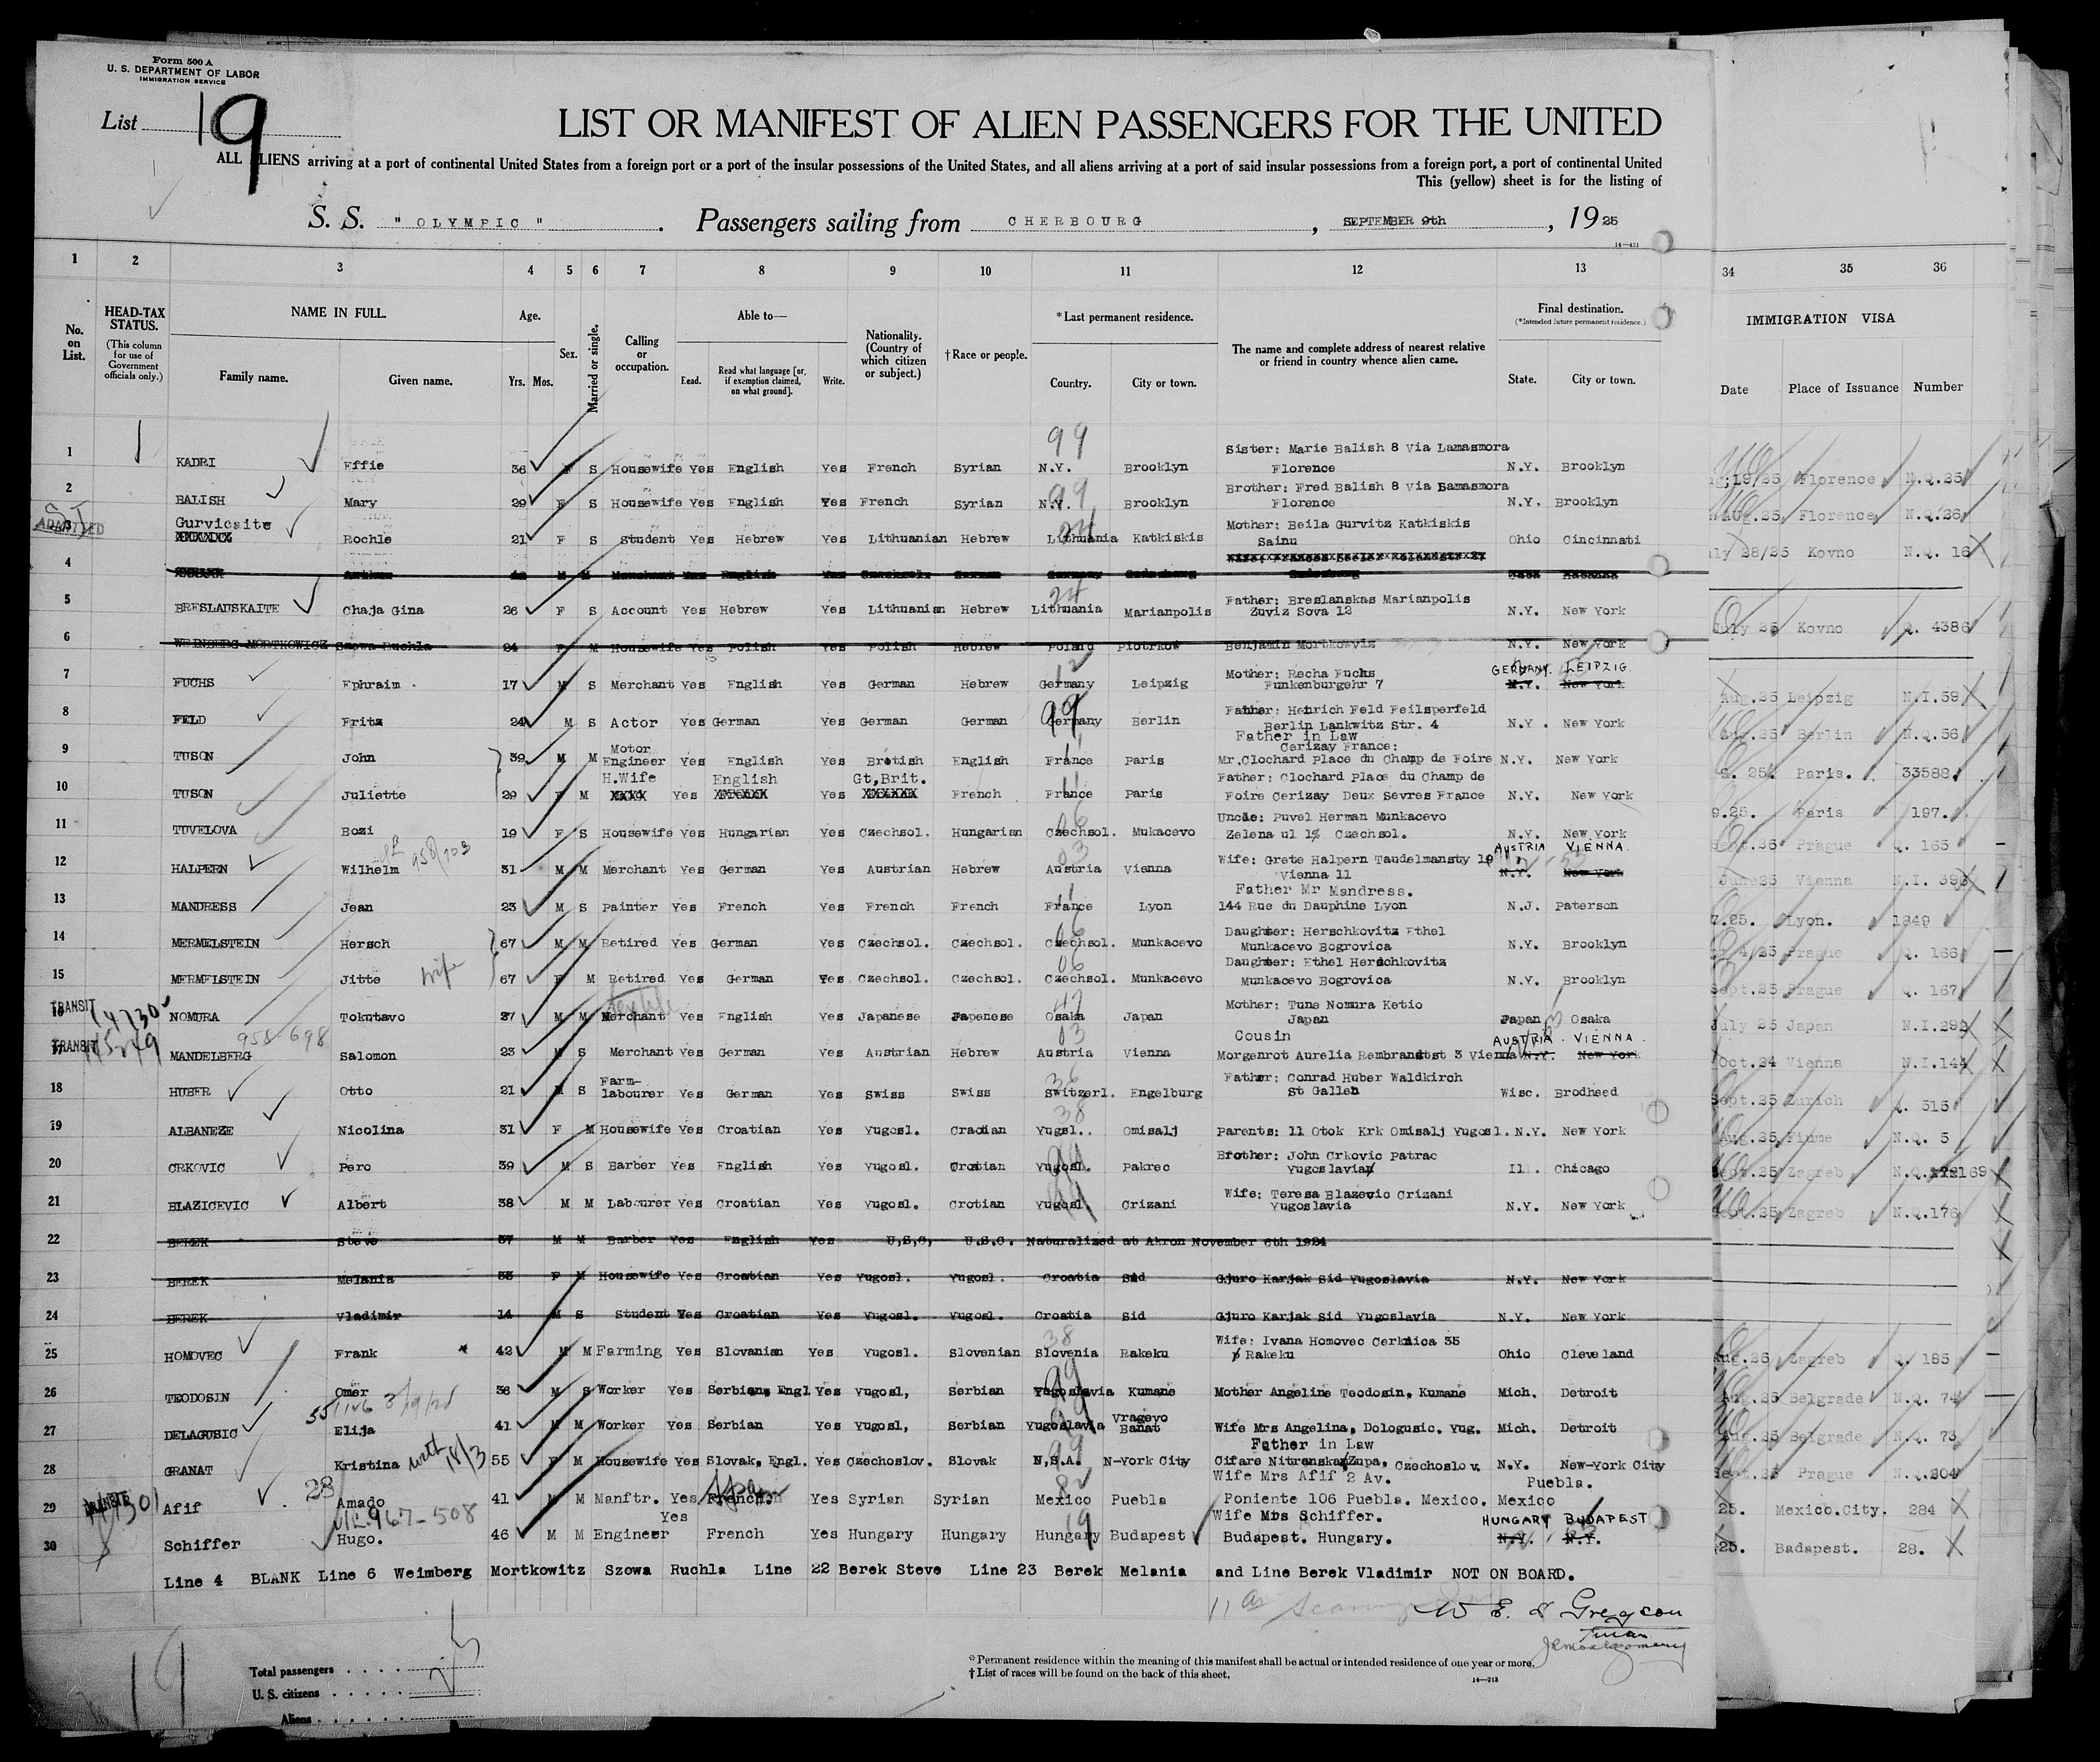 Form 500 A
U. S. DEPARTMENT OF LABOR
IMMIGRATION SERVICE
List 19
LIST OR MANIFEST OF ALIEN PASSENGERS FOR THE UNITED
ALL ALIENS arriving at a port of continental United States from a foreign port or a port of the insular possessions of the United States, and all aliens arriving at a port of said insular possessions from a foreign port, a port of continental United
This (yellow) sheet is for the listing of
S. S. " OLYMPIC " . Passengers sailing from CHERBOURG , SEPTEMBER 9th , 1925
16—431
1 2 3 4 5 6 7 8 9 10 11 12 13 34 35 36
No. on List.
HEAD-TAX STATUS. (This column for use of Government officials only.)
NAME IN FULL. Family name. Given name.
Age. Yrs. Mos.
Sex.
Married or single.
Calling or occupation.
Able to— Read. Read what language [or, if exemption claimed, on what ground]. Write.
Nationality. (Country of which citizen or subject.)
†Race or people.
*Last permanent residence. Country. City or town.
The name and complete address of nearest relative or friend in country whence alien came.
Final destination. (*Intended future permanent residence.) State. City or town.
IMMIGRATION VISA Date Place of Issuance Number
99
Sister: Marie Balish 8 Via Lamasmora
1 KADRI Effie 36 F S Housewife Yes English Yes French Syrian N.Y. Brooklyn Florence N.Y. Brooklyn 19/25 Florence N.Q.25
99
Brother: Fred Balish 8 Via Lamasmora
2 BALISH Mary 29 F S Housewife Yes English Yes French Syrian N.Y. Brooklyn Florence N.Y. Brooklyn Aug.25, Florence N.Q.26
SI ADMITTED
Gurvicaite 24 Mother: Beila Gurvitz Katkiskis
3 XXXXXX Rochle 21 F S Student Yes Hebrew Yes Lithuanian Hebrew Lithuania Katkiskis Sainu Ohio Cincinnati 28/25 Kovno N.Q. 16
4
24 Father: Breslanskas Marianpolis
5 BRESLAUSKAITE Chaja Gina 26 F S Account Yes Hebrew Yes Lithuanian Hebrew Lithuania Marianpolis Zuviz Sova 12 N.Y. New York July 25 Kovno Q. 4386
6 WEINBERG MORTKOWICZ Szowa Ruchla 24 F M Housewife Yes Polish Yes Polish Hebrew Poland Piotrkow Benjamin Mortkowviz N.Y. New York
12 Mother: Recha Fuchs GERMANY. LEIPZIG
7 FUCHS Ephraim 17 M S Merchant Yes English Yes German Hebrew Germany Leipzig Funkenburgehr 7 N.Y. New York Aug.25 Leipzig N.I.59
99 Father: Heinrich Feld Feilsperfeld
8 FELD Fritz 24 M S Actor Yes German Yes German German Germany Berlin Berlin Lankwitz Str. 4 N.Y. New York Aug.25 Berlin N.Q.56
Father in Law
Motor 11 Cerizay France:
9 TUSON John 39 M M Engineer Yes English Yes British English France Paris Mr.Clochard Place du Champ de Foire N.Y. New York 9. 25. Paris. 33588.
H.Wife English Gt,Brit. 11 Father: Clochard Place du Champ de
10 TUSON Juliette 29 F M XXXX Yes XXXXXX Yes XXXXXX French France Paris Foire Cerizay Deux Sevres France N.Y. New York 9.25. Paris 197.
06 Uncle: Puvel Herman Munkacevo
11 TUVELOVA Bozi 19 F S Housewife Yes Hungarian Yes Czechsol. Hungarian Czechsol. Mukacevo Zelena ul Czechsol. N.Y. New York Sept.25 Prague Q. 165
958/703 03 AUSTRIA VIENNA
12 HALPERN Wilhelm 31 M M Merchant Yes German Yes Austrian Hebrew Austria Vienna Wife: Grete Halpern Taudelmansty 19 Vienna 11 N.Y. New York June25 Vienna N.I. 393
11 Father Mr Mandress.
13 MANDRESS Jean 23 M S Painter Yes French Yes French French France Lyon 144 Rue du Dauphine Lyon N.J. Paterson 7.25. Lyon. 1849
06 Daughter: Herschkovitz Ethel
14 MERMELSTEIN Hersch 67 M M Retired Yes German Yes Czechsol. Czechsol. Czechsol. Munkacevo Munkacevo Bogrovica N.Y. Brooklyn 4/25 Prague Q. 166
wife 06 Daughter: Ethel Herschkovitz
15 MERMELSTEIN Jitte 67 F M Retired Yes German Yes Czechsol. Czechsol. Czechsol. Munkacevo Munkacevo Bogrovica N.Y. Brooklyn Sept.25 Prague Q. 167
TRANSIT 14730 Mother: Tune Nomura Ketio
16 NOMURA Tokutavo 37 M M Merchant Yes English Yes Japanese Japenese Osaka Japan Japan Japan Osaka July 25 Japan N.I.292
TRANSIT 955-698 03 Cousin AUSTRIA . VIENNA .
17 MANDELBERG Salomon 23 M S Merchant Yes German Yes Austrian Hebrew Austria Vienna Morgenrot Aurelia Rembrandtst 3 Vienna N.Y. New York Oct.24 Vienna N.I.144
Farm- 36 Father: Conrad Huber Waldkirch
18 HUBER Otto 21 M S labourer Yes German Yes Swiss Swiss Switzerl. Engelburg St Gallen Wisc. Brodheed Sept.25 Zurich Q. 515
38
19 ALBANEZE Nicolina 31 F M Housewife Yes Croatian Yes Yugosl. Yugosl. Omisalj Parents: 11 Otok Krk Omisalj Yugosl. N.Y. New York Aug.25, Fiume N.Q. 5
99 Brother: John Crkovic Patrac
20 CRKOVIC Pero 39 M S Barber Yes English Yes Yugosl. Croatian Yugosl. Pakrec Yugoslavia Ill. Chicago Sept.25 Zagreb N.Q. 169
99 Wife: Teresa Blazevic Crizani
21 BLAZICEVIC Albert 38 M M Labourer Yes Croatian Yes Yugosl. Crotian Yugosl. Crizani Yugoslavia N.Y. New York Sept.25 Zagreb N.Q.176
22 BEREK Steve 37 M M Barber Yes English Yes U,S,C, U.S.C. Naturalized at Akron November 6th 1924
23 BEREK Melania 33 F M Housewife Yes Croatian Yes Yugosl. Yugosl. Croatia Sid Gjuro Karjak Sid Yugoslavia N.Y. New York
24 BEREK Vladimir 14 M S Student Yes Croatian Yes Yugosl. Yugosl. Croatia Sid Gjuro Karjak Sid Yugoslavia N.Y. New York
38 Wife: Ivana Homovec Cerknica 35
25 HOMOVEC Frank 42 M M Farming Yes Slovanian Yes Yugosl. Slovenian Slovenia Rakeku Rakeku Ohio Cleveland Aug.25 Zagreb Q. 185
99
26 TEODOSIN Omer 36 M S Worker Yes Serbian, Engl Yes Yugosl, Serbian Yugoslavia Kumane Mother Angeline Teodosin, Kumane Mich. Detroit Aug.25 Belgrade N.Q. 74
Vragevo
27 DELAGUSIC Elija 41 M M Worker Yes Serbian Yes Yugosl, Serbian Yugoslavia Banat Wife Mrs Angelina, Dologusic. Yug. Mich. Detroit Aug.25 Belgrade N.Q. 73
18/3 99 Father in Law
28 GRANAT Kristina 55 F M Housewife Yes Slovak, Engl. Yes Czechoslov. Slovak U,S.A. N-York City Cifare Nitranska Zupa, Czechoslov. N.Y. New-York City Sept.25 Prague N.Q.304
TRANSIT 1301 23 Span 82 Wife Mrs Afif 2 Av. Puebla.
29 Afif Amado 41 M M Manftr. Yes French. Yes Syrian Syrian Mexico Puebla Poniente 106 Puebla. Mexico. Mexico 25. Mexico.City. 284
967-508 Yes 19 Wife Mrs Schiffer. HUNGARY BUDAPEST
30 Schiffer Hugo. 46 M M Engineer French Yes Hungary Hungary Hungary Budapest Budapest. Hungary. N.Y. N.Y. 25. Badapest. 28.
Line 4 BLANK Line 6 Weimberg Mortkowitz Szowa Ruchla Line 22 Berek Steve Line 23 Berek Melania and Line Berek Vladimir NOT ON BOARD.
19
Total passengers
U. S. citizens
Aliens
*Permanent residence within the meaning of this manifest shall be actual or intended residence of one year or more.
†List of races will be found on the back of this sheet.